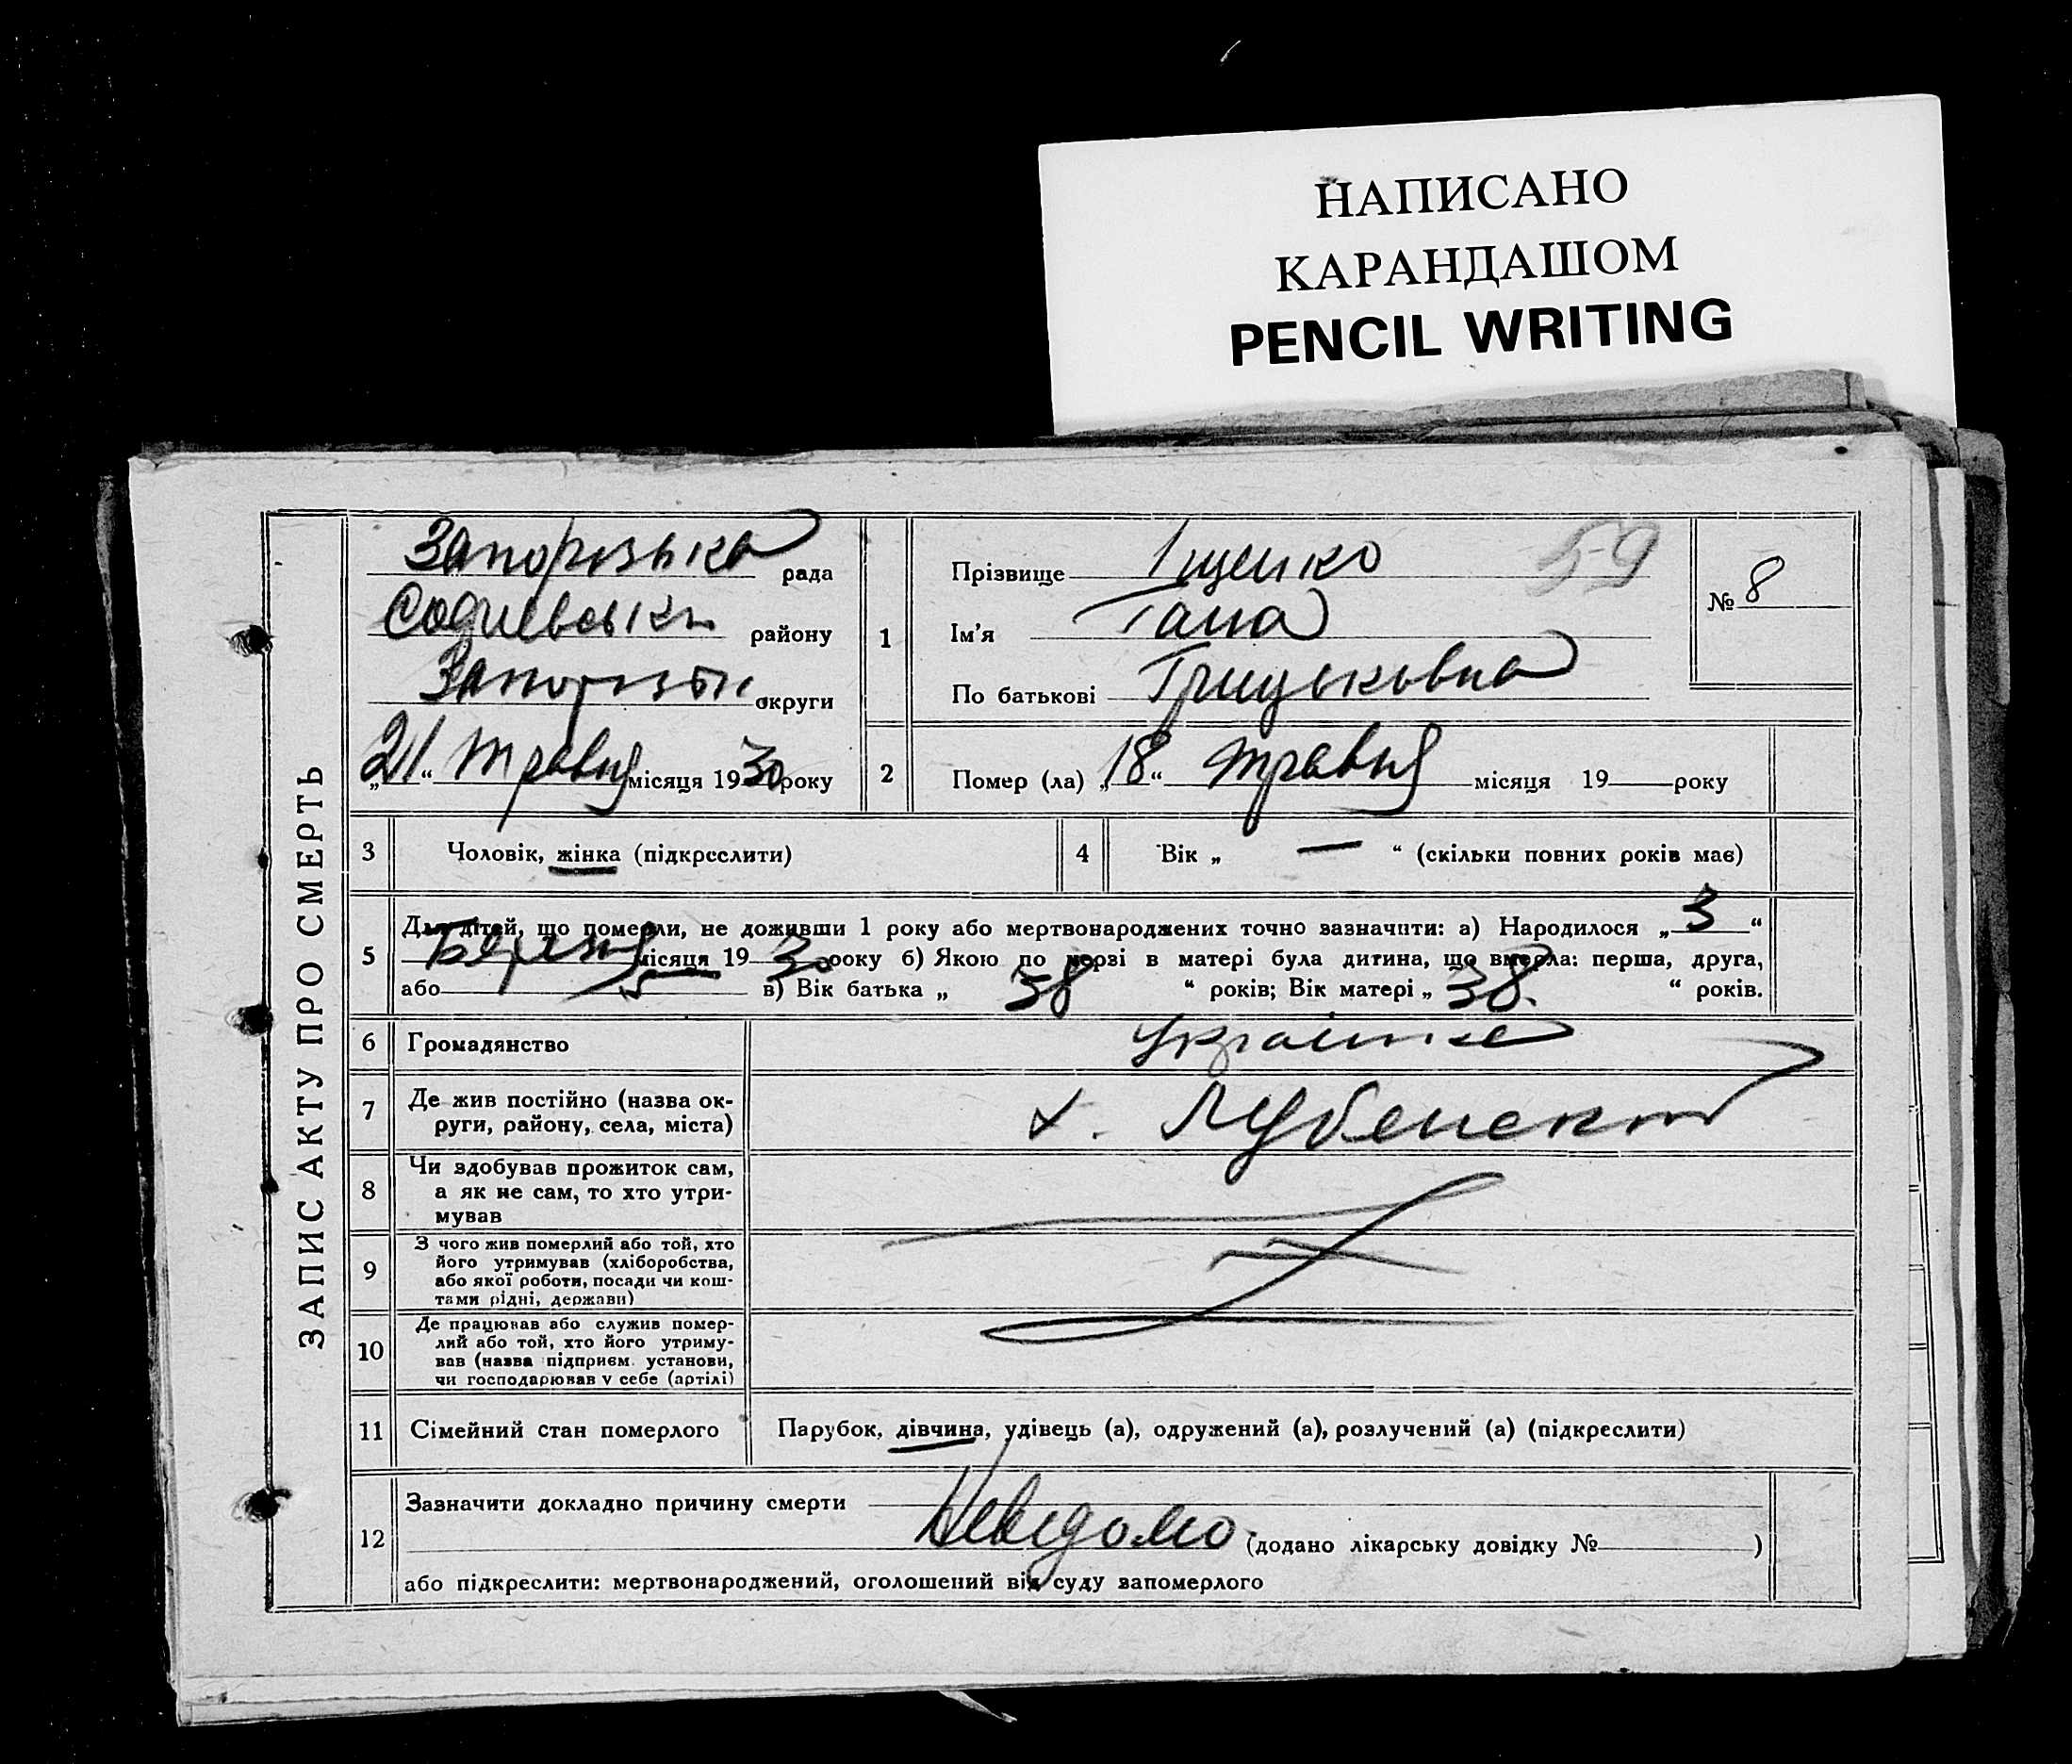 НАПИСАНО
КАРАНДАШОМ
PENCIL WRITING
ЗАПИС АКТУ ПРО СМЕРТЬ
Запорізька рада
району
округи
„21“ травня місяця 1930 року
1
Прізвище Іщенко 59
Ім'я Гана
По батькові Грицьковна
№ 8
2 Помер (ла) „18“ травня місяця 19 року
3 Чоловік, жінка (підкреслити)
4 Вік „ — “ (скільки повних років має)
5 Для дітей, що померли, не доживши 1 року або мертвонароджених точно зазначити: а) Народилося „3“
місяця 1930 року б) Якою по черзі в матері була дитина, що вмерла: перша, друга,
або 5 в) Вік батька „ 38 “ років; Вік матері „ 38. “ років.
6 Громадянство Українка
7 Де жив постійно (назва ок-
руги, району, села, міста) х. Лубенский
8 Чи здобував прожиток сам,
а як не сам, то хто утри-
мував
9 З чого жив померлий або той, хто
його утримував (хліборобства,
або якої роботи, посади чи кош-
тами рідні, держави)
10 Де працював або служив помер-
лий або той, хто його утриму-
вав (назва підприєм. установи,
чи господарював у себе (артілі)
11 Сімейний стан померлого Парубок, дівчина, удівець (а), одружений (а), розлучений (а) (підкреслити)
12 Зазначити докладно причину смерти
Невідомо (додано лікарську довідку № )
або підкреслити: мертвонароджений, оголошений від суду запомерлого